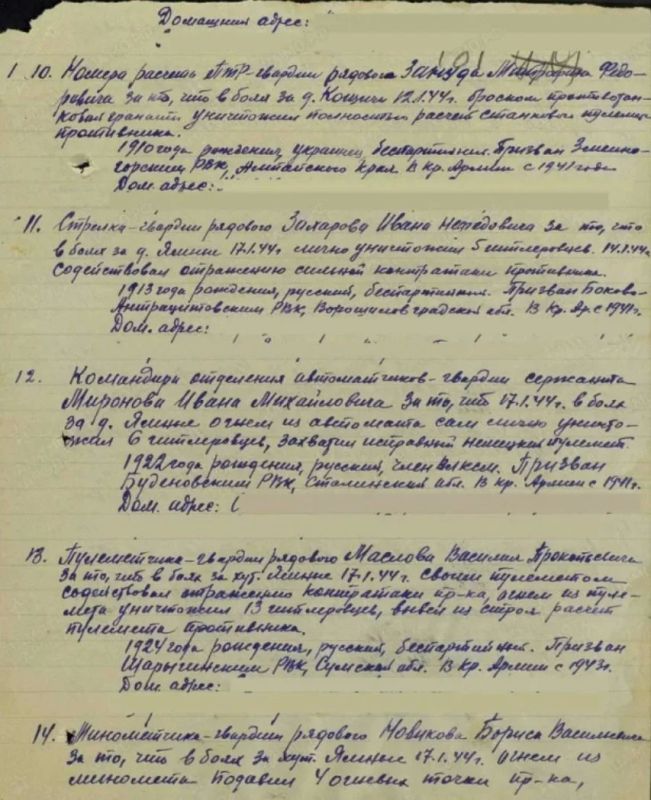 Домашний адрес:
10. Номера расчета ПТР-гвардии рядового Митрофана Федо-
ровича за то, что в боях за д. Кощичи 12.1.44г. броском противотан-
ковой гранаты уничтожил полностью расчет станкового пулемета
противника.
1910 года рождения, украинец, беспартийный. Призван Змеино-
горским РВК, Алтайского края. В Кр. Армии с 1941 года
Дом. адрес:
11. Стрелка-гвардии рядового Захарова Ивана за то, что
в боях за д. Ямное 17.1.44г. лично уничтожил 5 гитлеровцев. 14.1.44г.
содействовал отражению сильной контратаки противника.
1913 года рождения, русский, беспартийный. Призван Боково-
Антрацитовским РВК, Ворошиловградской обл. В Кр. Ар. с 1941г.
Дом. адрес:
12. Командира отделения автоматчиков-гвардии сержанта
Миронова Ивана Михайловича за то, что 17.1.44г. в боях
за д. Ямное огнем из автомата сам лично уничто-
жил 6 гитлеровцев, захватил исправный немецкий пулемет.
1922 года рождения, русский, член ВЛКСМ. Призван
Буденовским РВК, Сталинской обл. В Кр. Армии с 1941г.
Дом. адрес:
13. Пулеметчика-гвардии рядового Маслова Василия Прокопьевича
за то, что в боях за хут. Ямное 17.1.44г. своим пулеметом
содействовал отражению контратаки пр-ка, огнем из пуле-
мета уничтожил 13 гитлеровцев, вывел из строя расчет
пулемета противника.
1924 года рождения, русский, беспартийный. Призван
РВК, Сумской обл. В Кр. Армии с 1943г.
Дом. адрес:
14. Минометчика-гвардии рядового Новикова Бориса Васильевича
за то, что в боях за хут. Ямное 17.1.44г. огнем из
миномета подавил 4 огневых точки пр-ка,